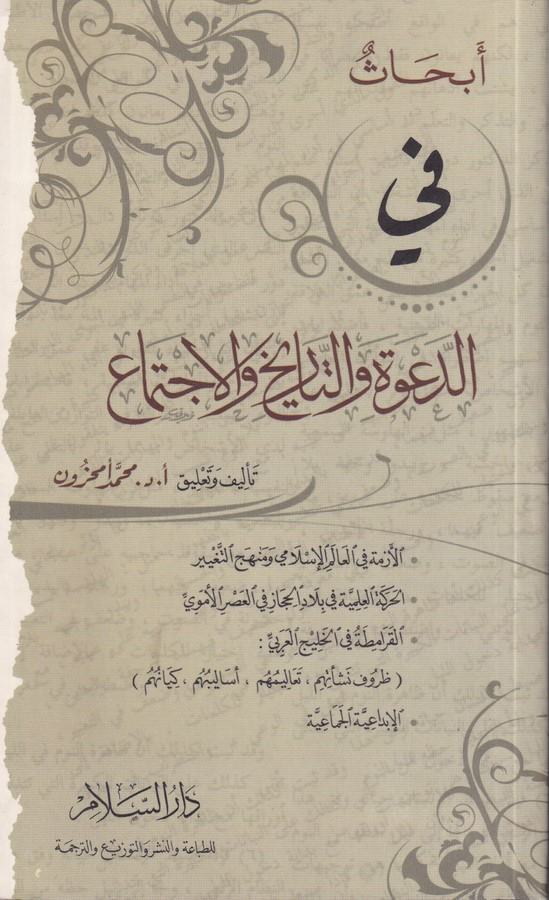 أَبحَاثٌ
في
الدَّعْوَةِ وَالتَّارِيخِ وَالاجْتِمَاعِ
تَأليفُ وَتَعْلِيقُ أ.د. محمَّد أمحزُون
• الأَزمة في العَالَمِ الإِسْلَامِي وَمَنهَج التَّغْيير
• الحَركَة العِلميَّة في بِلَادِ الحجَاز في العَصْرِ الأُمَويِّ
• القَرامِطَةُ في الخَليج العَربيِّ :
( ظرُوف نَشأتِهِم ، تَعَالِيمُهُم ، أسَاليبُهُم ، كِيَانُهُم )
• الإبدَاعيَّة الجَماعِيَّة
دَارُ السَّلَامِ
للطباعة والنشر والتوزيع والترجمة